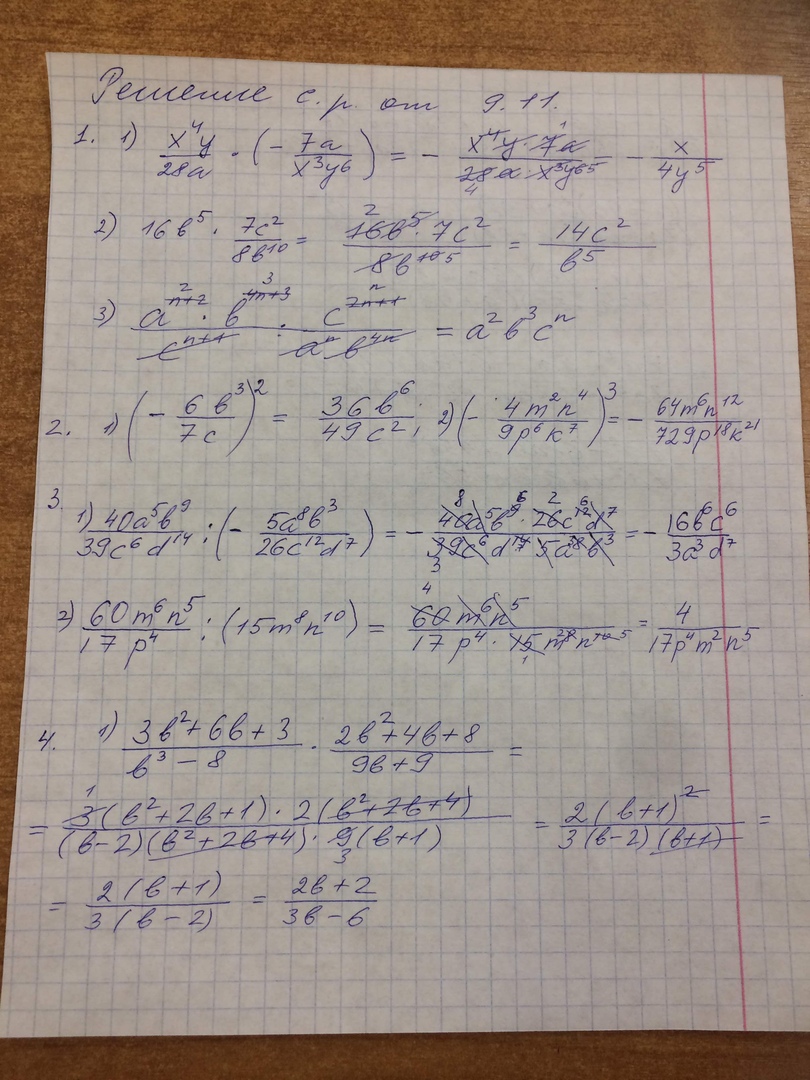 Решение с.р. от 9.11.
1. 1) x⁴y/28a · (− 7a/x³y⁶) = − x⁴y·7a/28a·x³y⁶ = − x/4y⁵
2) 16b⁵ · 7c²/8b¹⁰ = 16b⁵·7c²/8b¹⁰ = 14c²/b⁵
3) aⁿ⁺²·b⁴ⁿ⁺³/cⁿ⁺¹ · c²ⁿ⁺¹/aⁿb⁴ⁿ = a²b³cⁿ
2. 1) (− 6b³/7c)² = 36b⁶/49c²; 2) (− 4m²n⁴/9p⁶k⁷)³ = − 64m⁶n¹²/729p¹⁸k²¹
3. 1) 40a⁵b⁹/39c⁶d¹⁴ : (− 5a⁸b³/26c¹²d⁷) = − 40a⁵b⁹·26c¹²d⁷/39c⁶d¹⁴ 5a⁸b³ = − 16b⁶c⁶/3a³d⁷
2) 60m⁶n⁵/17p⁴ : (15m⁸n¹⁰) = 60m⁶n⁵/17p⁴·15m⁸n¹⁰ = 4/17p⁴m²n⁵
4. 1) 3b²+6b+3/b³−8 · 2b²+4b+8/9b+9 =
= 3(b²+2b+1)·2(b²+2b+4)/(b−2)(b²+2b+4)·9(b+1) = 2(b+1)²/3(b−2)(b+1) =
= 2(b+1)/3(b−2) = 2b+2/3b−6